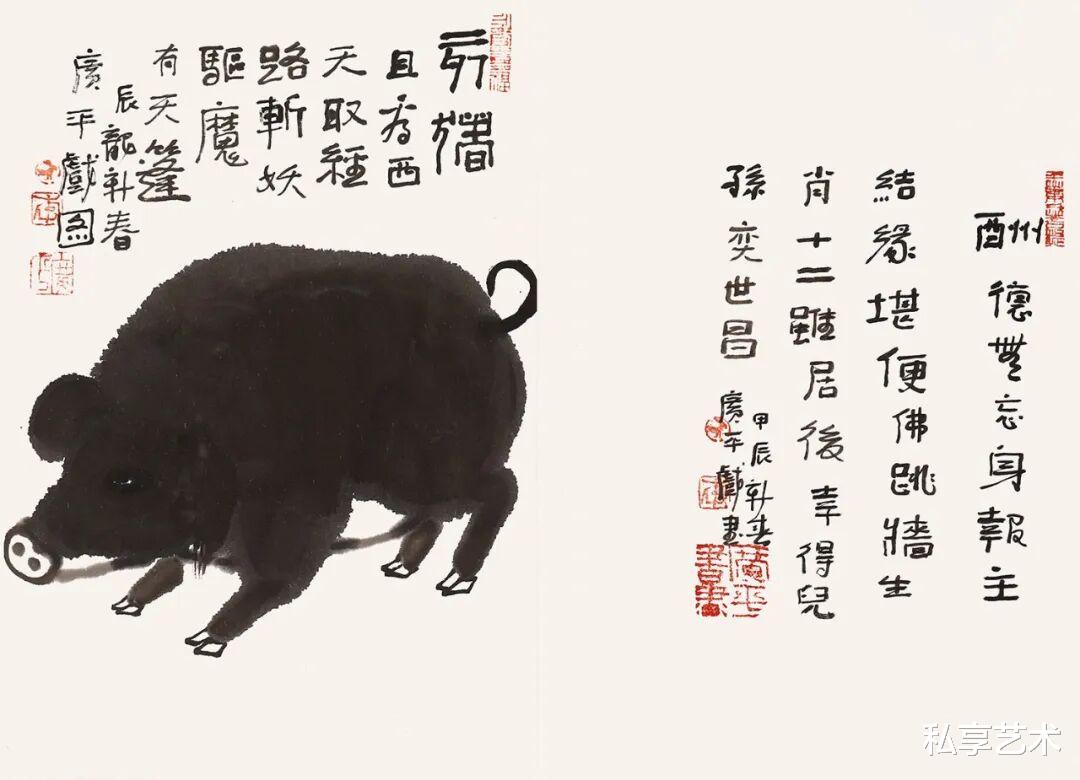 酬德無忘身報主
結緣堪便佛跳牆生
肖十二雖居後幸得兒
孫奕世昌
甲辰新春
廣平戲畫
廣平書畫
亥豬
且看西
天取經
路斬妖
驅魔
有天篷
辰龍新春
廣平戲圖
私享艺术